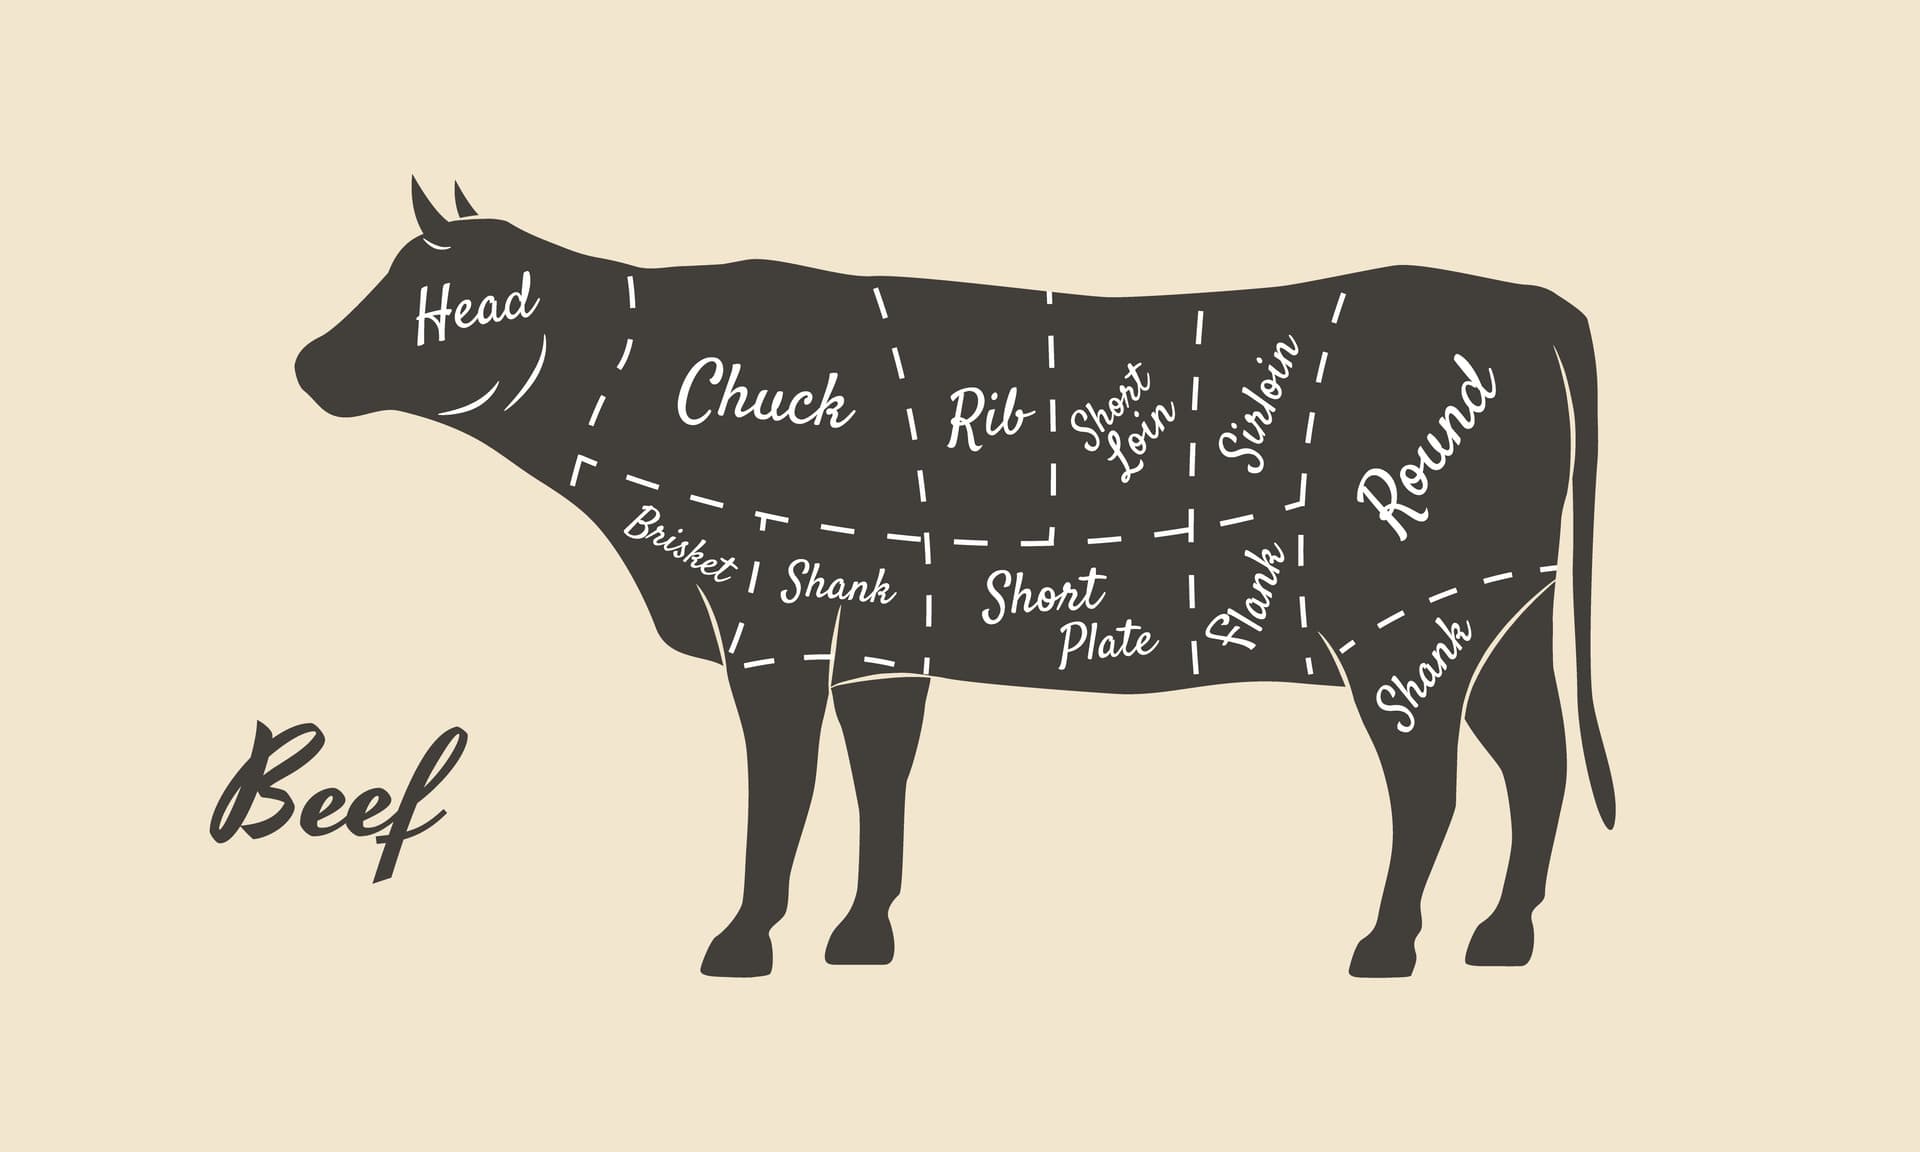 Head
Chuck
Rib
Short
Loin
Sirloin
Round
Brisket
Shank
Short
Plate
Flank
Shank
Beef